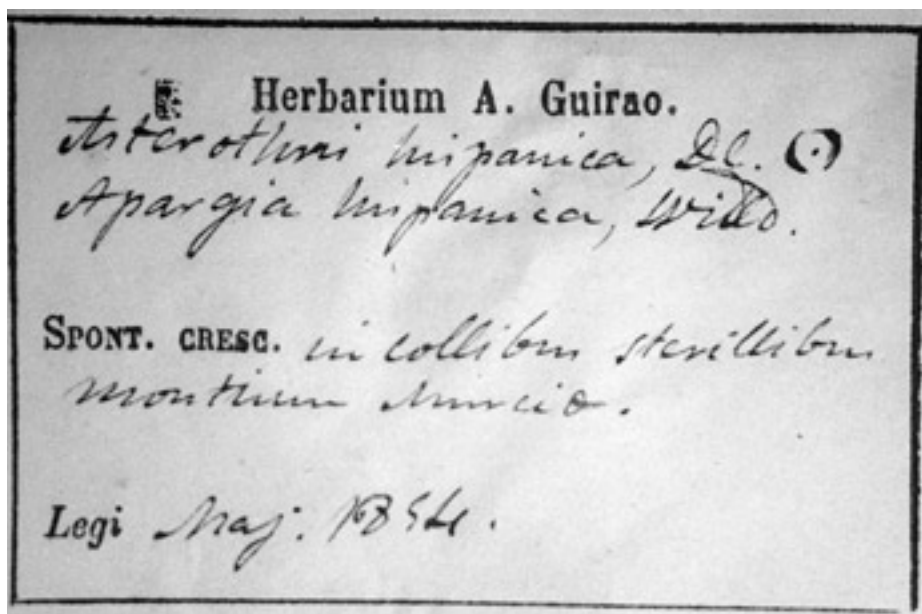 Herbarium A. Guirao.
Asterothrix hispanica, DC. (·)
Apargia hispanica, Willd.
SPONT. CRESC. in collibus sterillibus
montium Murciæ.
Legi Maj. 1854.